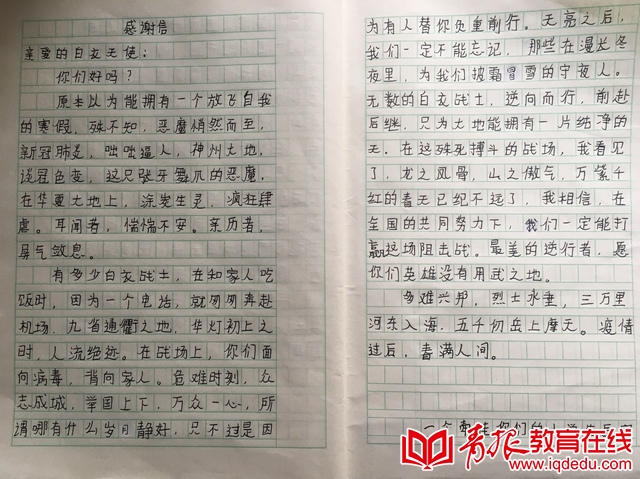 感谢信
亲爱的白衣天使：
你们好吗？
原本以为能拥有一个放飞自我
的寒假，殊不知，恶魔悄然而至，
新冠肺炎，咄咄逼人，神州大地，
谈冠色变，这只张牙舞爪的恶魔，
在华夏大地上，涂炭生灵，疯狂肆
虐。耳闻者，惴惴不安。亲历者，
屏气敛息。
有多少白衣战士，在和家人吃
饭时，因为一个电话，就匆匆奔赴
机场。九省通衢之地，华灯初上之
时，人流绝迹。在战场上，你们面
向病毒，背向家人。危难时刻，众
志成城，举国上下，万众一心，所
谓哪有什么岁月静好，只不过是因
为有人替你负重前行。天亮之后，
我们一定不能忘记，那些在漫长冬
夜里，为我们披霜冒雪的守夜人。
无数的白衣战士，逆向而行，前赴
后继，只为大地能拥有一片纯净的
天。在这殊死搏斗的战场，我看见
了，龙之风骨，山之傲气，万紫千
红的春天已经不远了，我相信，在
全国的共同努力下，我们一定能打
赢这场阻击战。最美的逆行者，愿
你们英雄没有用武之地。
多难兴邦，烈士永垂，三万里
河东入海，五千仞岳上摩天。疫情
过后，春满人间。
一个
你们的小学生
青报教育在线
www.iqdedu.com